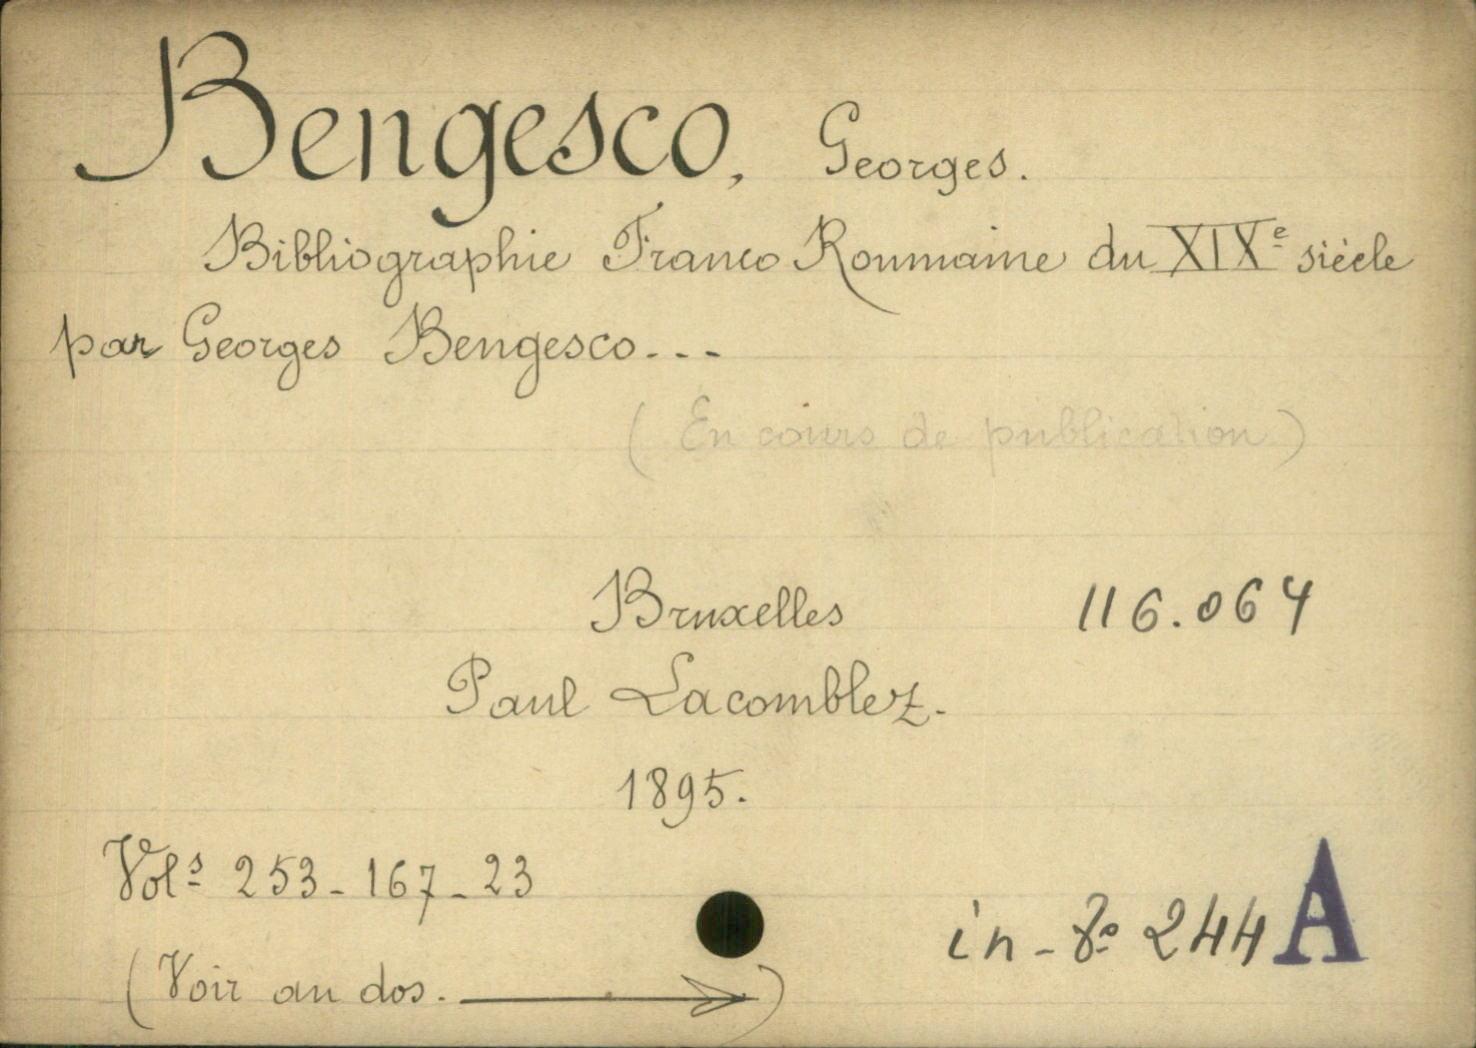 Bengesco, Georges.
Bibliographie Franco Roumaine du XIXe siècle
par Georges Bengesco...
(En cours de publication)
Bruxelles 116.064
Paul Lacomblez.
1895.
Vols 253-167-23
in-8o 244 A
(Voir au dos. →)